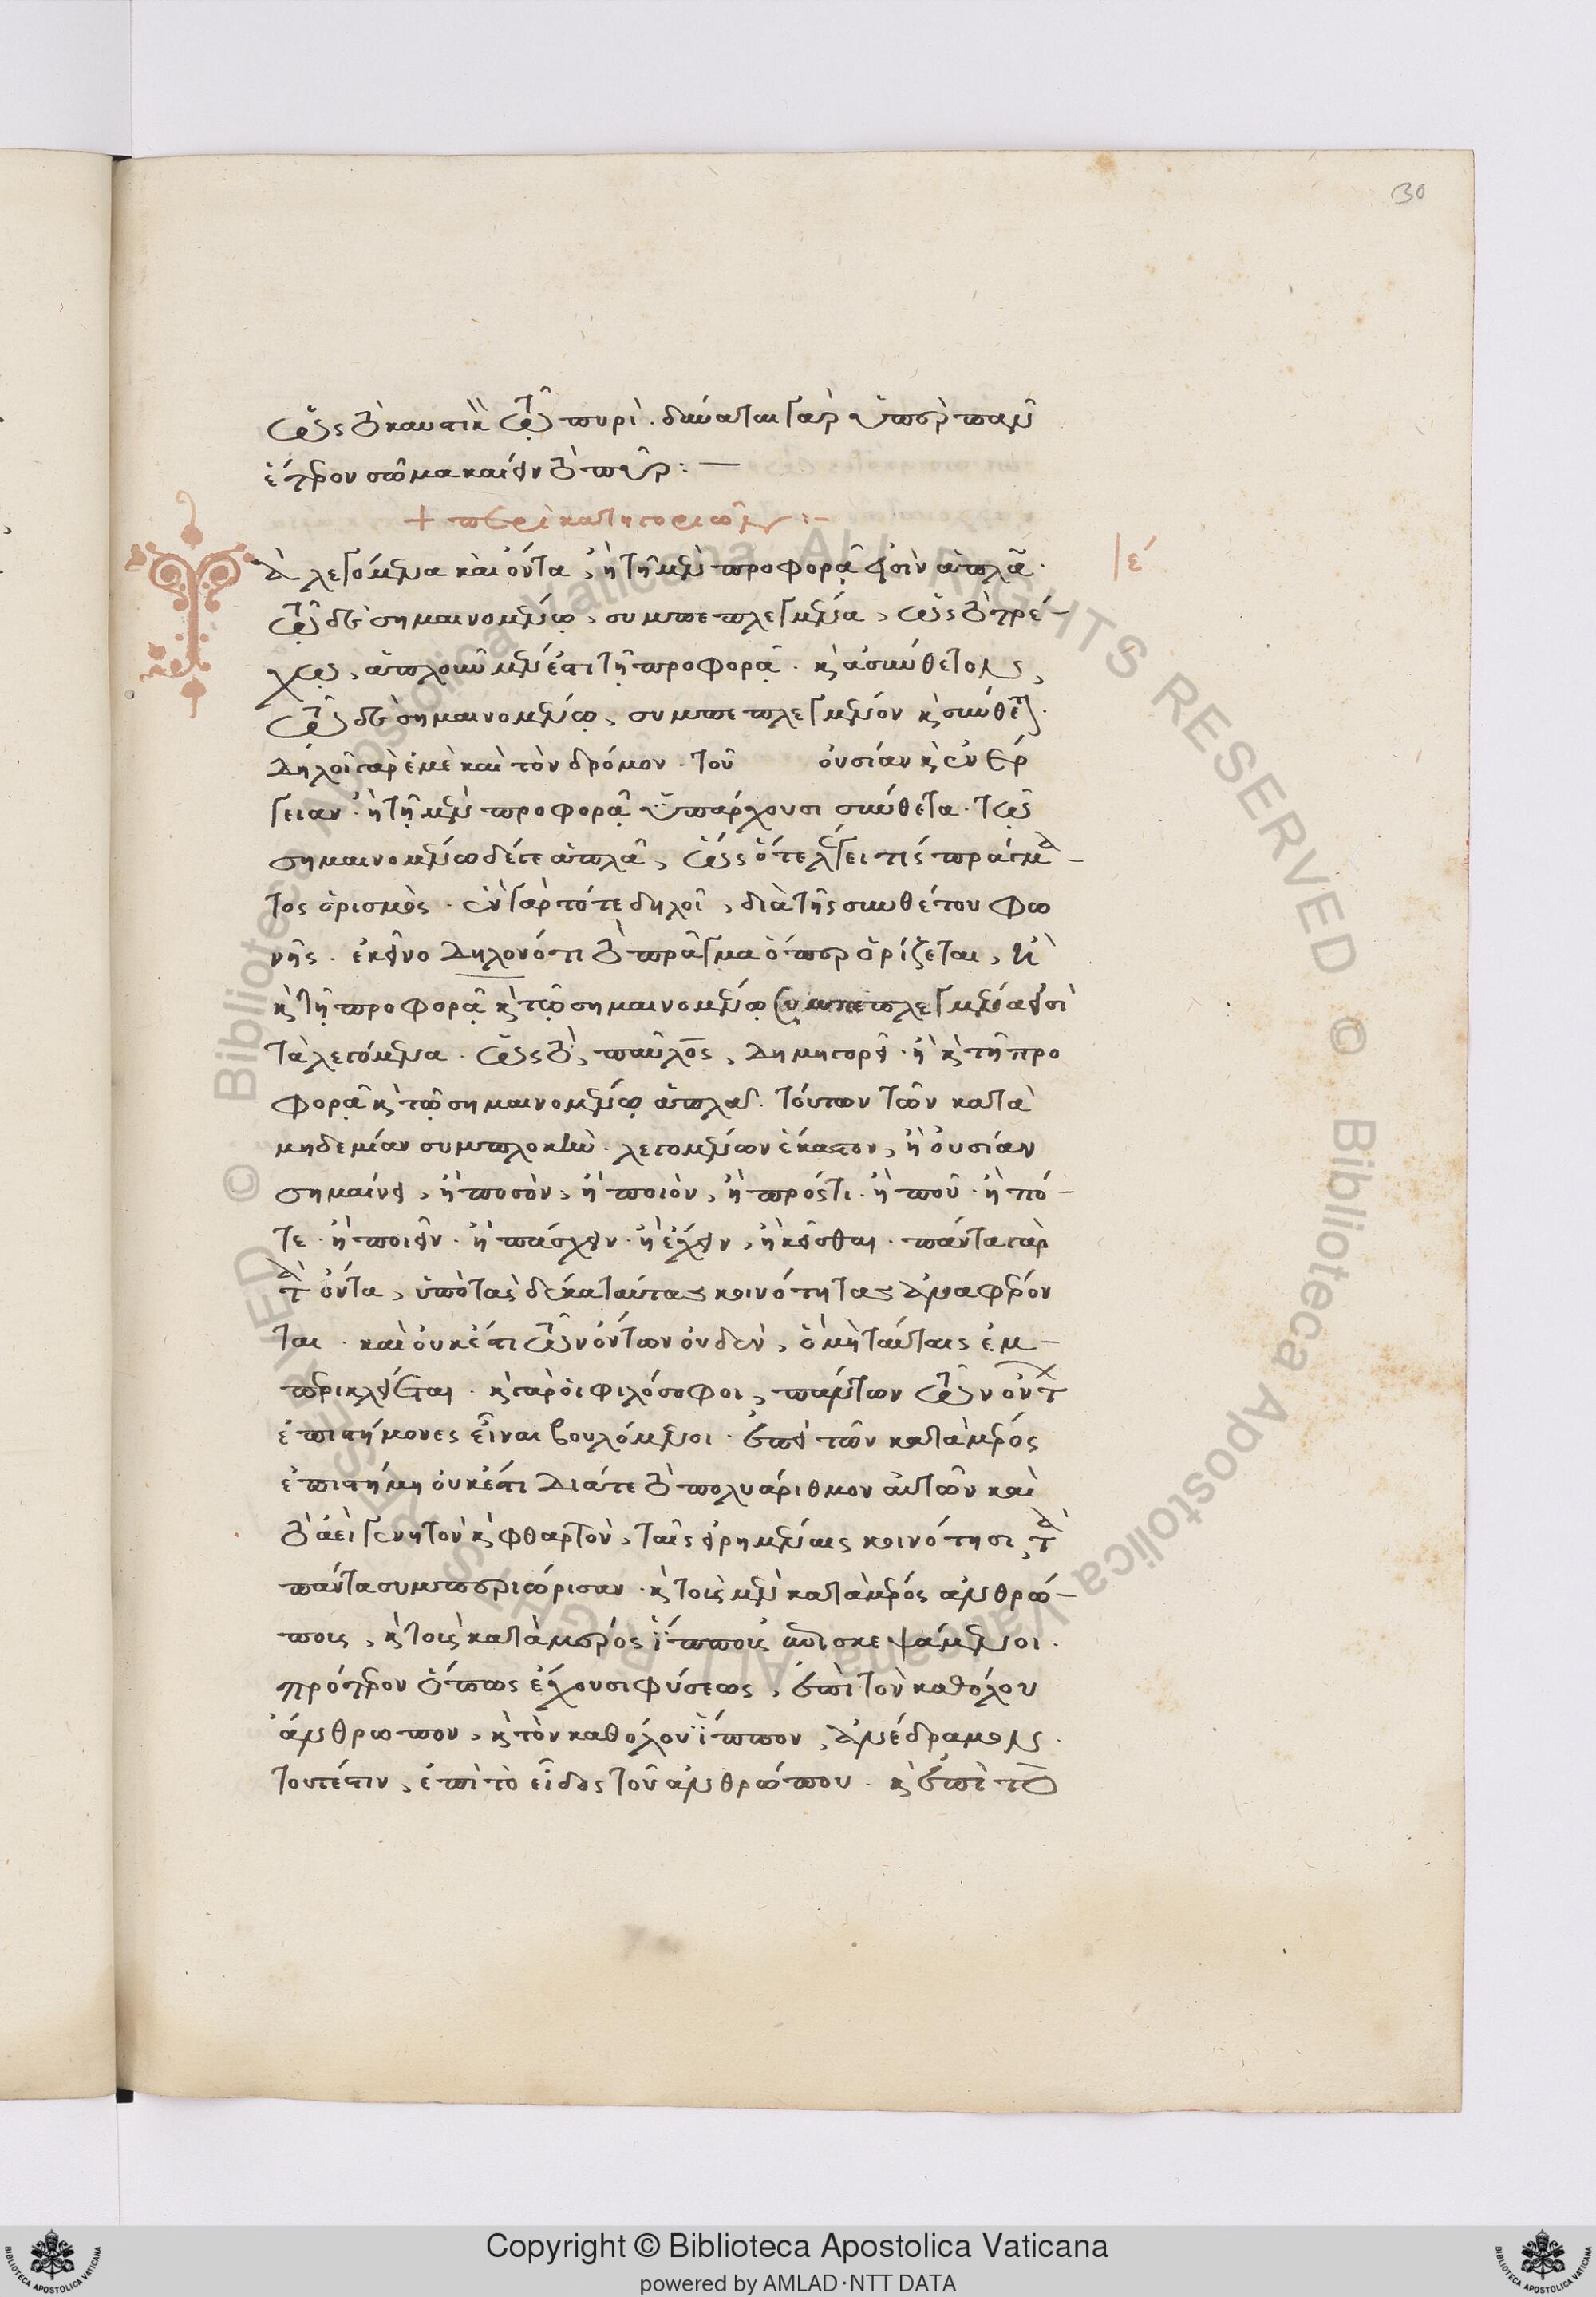 30
ὡς τὸ καυστικὸν τῷ πυρί. δύναται γὰρ ὑπὲρ πᾶν
ἕτερον σῶμα καίειν τὸ πῦρ: —
+ περὶ κατηγοριῶν :-
ιέ
Τὰ λεγόμενα καὶ ὄντα, ἢ τῇ μὲν προφορᾷ εἰσὶν ἁπλᾶ.
τῷ δὲ σημαινομένῳ, συμπεπλεγμένα, ὡς τὸ τρέ-
χω, ἁπλοῦν μέν ἐστι τῇ προφορᾷ. κ ἀσύνθετον,
τῷ δὲ σημαινομένῳ, συμπεπλεγμένον κ σύνθετον.
δηλοῖ γὰρ ἐμὲ καὶ τὸν δρόμον. τοῦ οὐσίαν κ ἐνέρ
γειαν. ἢ τῇ μὲν προφορᾷ ὑπάρχουσι σύνθετα. τῷ
σημαινομένῳ δέ γε ἁπλᾶ, ὡς ὅτε λέγει τίς πράγμα-
τος ὁρισμός. ἓν γὰρ τότε δηλοῖ, διὰ τῆς συνθέτου φω
νῆς. ἐκεῖνο δηλονότι τὸ πρᾶγμα ὅπερ ὁρίζεται, ἢ
κ τῇ προφορᾷ κ τῷ σημαινομένῳ συμπεπλεγμένα εἰσὶ
τὰ λεγόμενα. ὡς τὸ, παῦλος, δημηγορεῖ. ἢ κ τῇ προ
φορᾷ κ τῷ σημαινομένῳ ἁπλᾶ. τούτων τῶν κατὰ
μηδεμίαν συμπλοκὴν. λεγομένων ἕκαστον, ἢ οὐσίαν
σημαίνει, ἢ ποσὸν, ἢ ποιὸν, ἢ πρός τι. ἢ ποῦ. ἢ πό-
τε. ἢ ποιεῖν. ἢ πάσχειν. ἢ ἔχειν, ἢ κεῖσθαι. πάντα γὰρ
τὰ ὄντα, ὑπὸ τὰς δέκα ταύτας κοινότητας ἀναφέρον
ται. καὶ οὐκ ἔστι τῶν ὄντων οὐδὲν, ὃ μὴ ταύταις ἐμ-
περικλείεται. κ γὰρ οἱ φιλόσοφοι, πάντων τῶν ὄντων
ἐπιστήμονες εἶναι βουλόμενοι. ἐπεὶ τῶν κατὰ μέρος
ἐπιστήμη οὐκ ἔστι διά τε τὸ πολυάριθμον αὐτῶν καὶ
τὸ ἀεὶ γενητὸν κ φθαρτὸν, ταῖς εἰρημέναις κοινότησι, τὰ
πάντα συμπεριώρισαν. κ τοῖς μὲν κατὰ μέρος ἀνθρώ-
ποις, κ τοῖς κατὰ μέρος ἵπποις ἐπισκεψάμενοι.
πρότερον ὅπως ἔχουσι φύσεως, ἐπὶ τὸν καθόλου
ἄνθρωπον, κ τὸν καθόλου ἵππον, ἀνέδραμον.
τουτέστιν, ἐπὶ τὸ εἶδος τοῦ ἀνθρώπου. κ ἐπὶ τὸ
Copyright © Biblioteca Apostolica Vaticana
powered by AMLAD·NTT DATA